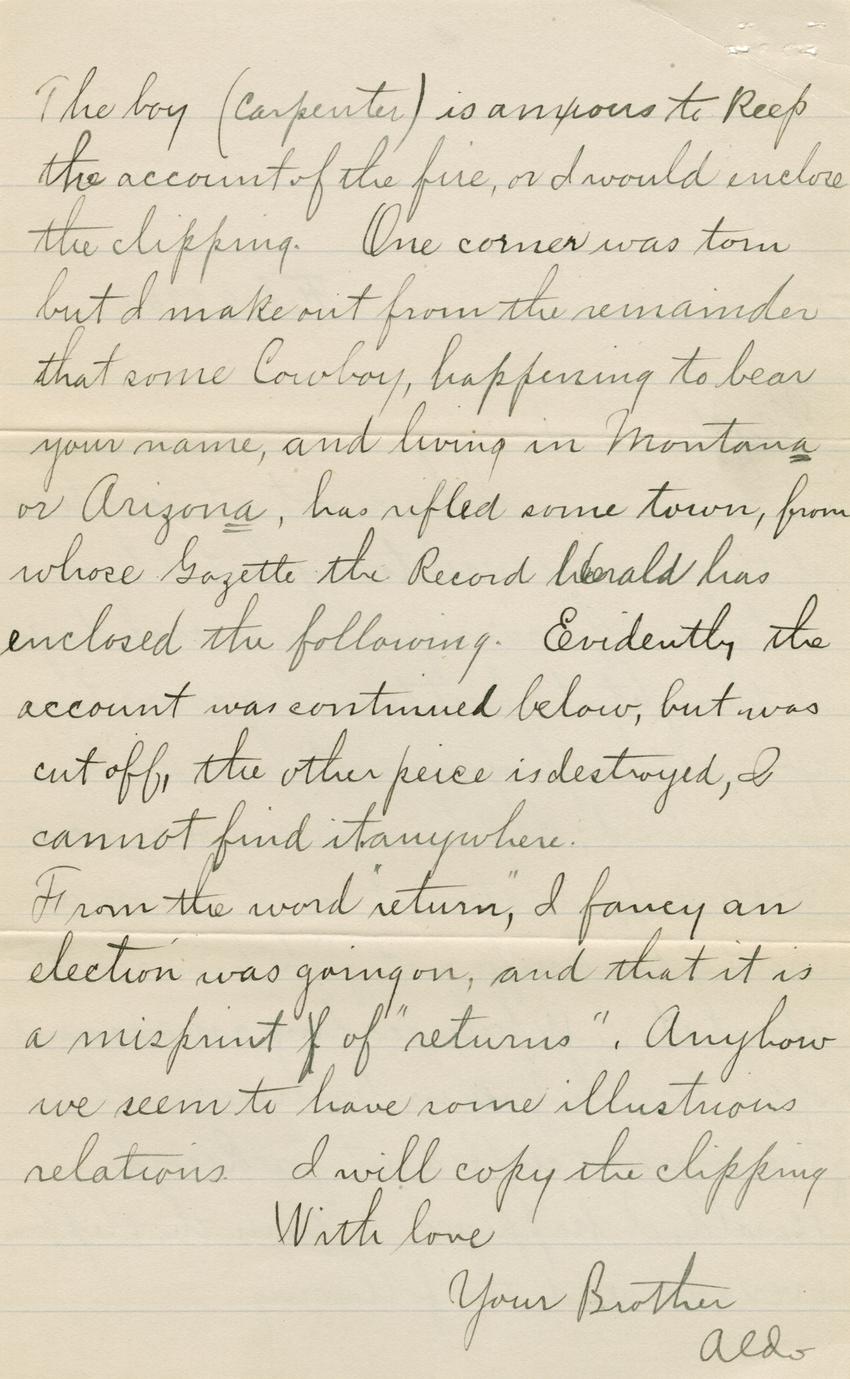 The boy (Carpenter) is anxious to keep
the account of the fire, or I would enclose
the clipping. One corner was torn
but I make out from the remainder
that some Cowboy, happening to bear
your name, and living in Montana
or Arizona, has rifled some town, from
whose Gazette the Record Herald has
enclosed the following. Evidently the
account was continued below, but was
cut off, the other peice is destroyed, I
cannot find it anywhere.
From the word "return", I fancy an
election was going on, and that it is
a misprint of "returns". Anyhow
we seem to have some illustrious
relations. I will copy the clipping
With love
Your Brother
Aldo